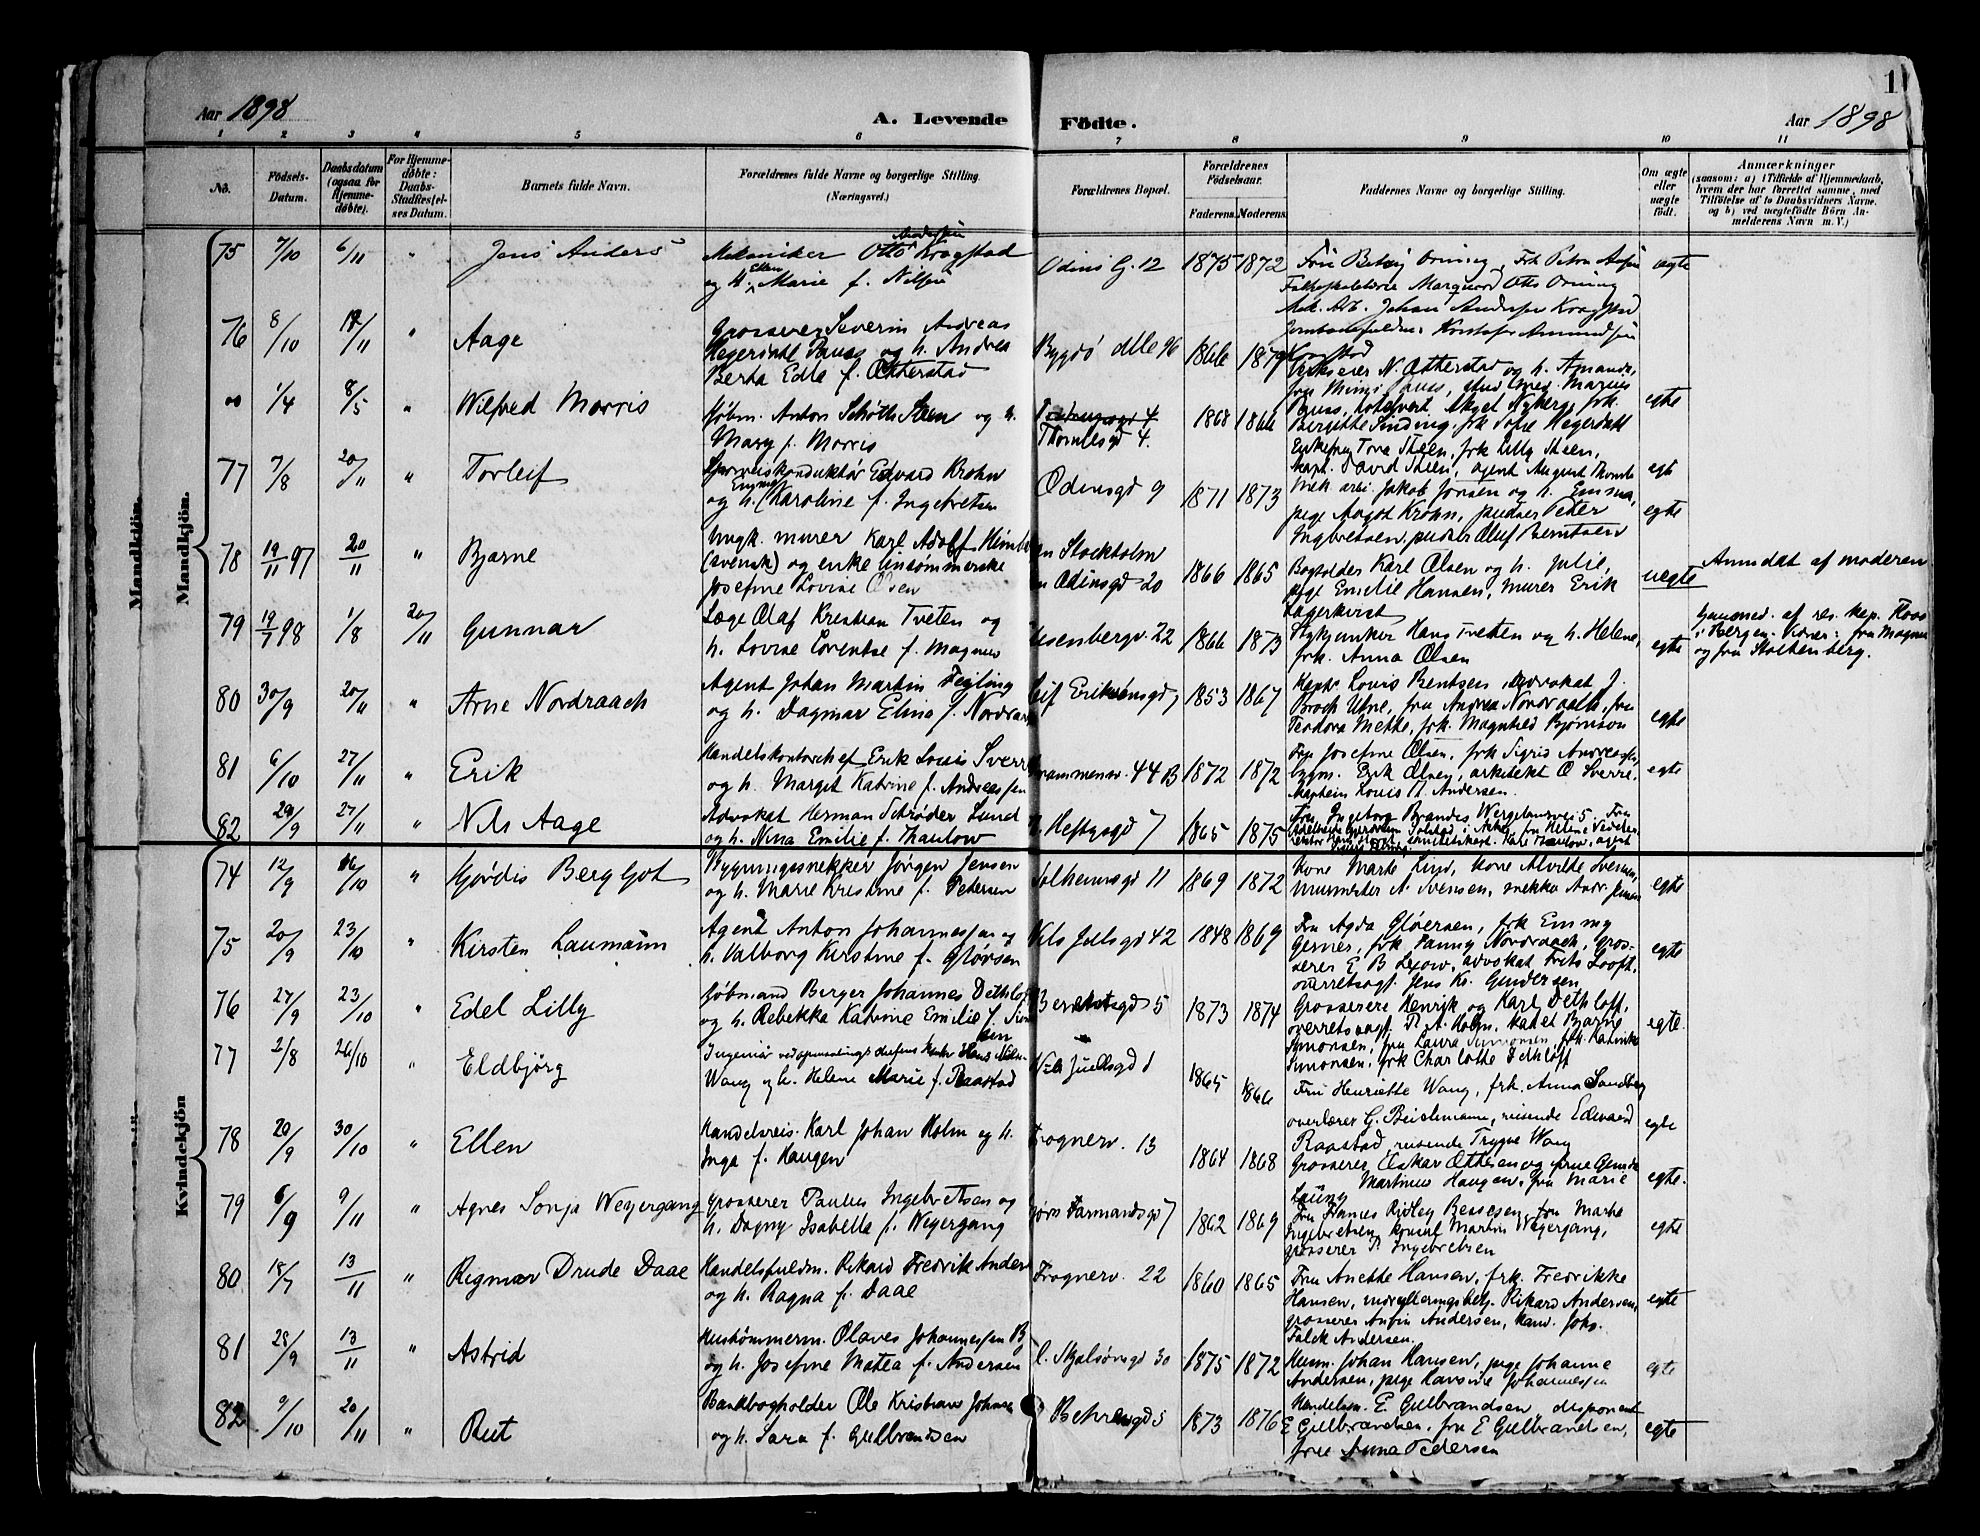 Aar 1898
A. Levende
Fødte.
Aar 1898
1
1 2 3 4 5 6 7 8 9 10 11
No.
Fødsels-Datum.
Daabsdatum (ogsaa for Hjemme-døbte).
For Hjemme-døbte: Daabs-Stadfæstel-ses Datum.
Barnets fulde Navn.
Forældrenes fulde Navne og borgerlige Stilling. (Næringsvei.)
Forældrenes Bopæl.
Forældrenes Fødselsaar.
Faderens. Moderens.
Faddernes Navne og borgerlige Stilling.
Om ægte eller uægte født.
Anmærkninger
(saasom: a) i Tilfælde af Hjemmedaab, hvem der har forrettet samme, med Tilføielse af to Daabsvidners Navne. og b) ved uægtefødte Børn An-melderens Navn m. V.)
Mandkjøn.
Mandkjøn.
75 7/10 6/11 " Jens Anders Mekaniker Otto Andersen Kragstad
og h. Ellen Marie f. Nilsen
Odins G. 12 1875 1872 Fru Betzy Orning, Frk Petra
Marquard Otto Orning
Johan Andersen Kragstad
Kragstad
ægte
76 8/10 /11 " Aage Grosserer Severin Andreas
Hegerdahl Pauss og h. Andrea
Berta Edle f. Otterstad
Bygdø alle 96 1866 1879 N. Otterstad og h. Amanda,
fru Mimi Pauss, stud. med. Marius
Pauss, Aksel Nyberg, frk.
Birgitte Sinding, frk Sofie Hegerdahl
egte
" 1/4 8/5 " Wilfred Morris Kjøbm. Anton Schøtt Steen og h.
Mary f. Morris
Thomlesgd 4. 1868 1866 Enkefru Tova Steen, frk Lilly Steen,
kapt. David Steen, agent August
egt
77 7/8 20/11 " Torleif Sporveiskonduktør Edvard Krohn
og h. Emma Karoline f. Ingebretsen
Odinsgd 9 1871 1873 Mek arb. Jakob Jonsen og h. Emma,
pige Aagot Krohn, pudser Peter
Ingebretsen, pudser Oluf Berntsen
egte
78 19/11 97 20/11 " Bjarne Ungk. murer Karl Adolf
(svensk) og enke linsømmerske
Josefine Lovise Olsen
Stockholm
Odinsgd 20 1866 1865 Bogholder Karl Olsen og h. Julie,
pige Emilie Hansen, murer Erik
Lagerkvist
uegte
Anmeldt af moderen
79 19/1 98 1/8 20/11 Gunnar Læge Olaf Kristian Tveten og
h. Lovise Lorentse f. Magnus
Uisenbergv. 22 1866 1873 Hans Tvetten og h. Helene,
frk. Anna Olsen
egte
hjemmed. af res. kap.
i Bergen. Vidner: fru Magnus
og fru Stoltenberg.
80 30/9 20/11 " Arne Nordraach Agent Johan Martin Feigling
og h. Dagmar Elina f. Nordraach
Leif Eriksensgd 1853 1867 Kaptn Louis Bentsen, advokat J.
Broch Utne, fru Andrea Nordraach, fru
Teodora Mette, frk. Magnhild Bjørnson
egte
81 6/10 27/11 " Erik Handelskontorchef Erik Louis Sverre
og h. Margit Katrine f. Andreassen
Drammensv. 44 B 1872 1872 Fru Josefine Olsen, frk Sigrid Andreassen,
bygm. Erik Olsen, arkitekt O Sverre,
kaptein Louis A. Andersen.
egte
82 29/9 27/11 " Nils Aage Advokat Herman Schrøder Lund
og h. Nina Emilie f. Thaulow
T. Heftysgd 7 1865 1875 Fru Ingeborg Brandes Wergelandsvei 5, Fru
egte
Kvindekjøn
74 12/9 16/10 " Hjørdis Bergljot Bygningssnekker Jørgen Jensen
og h. Marie Kristine f. Pedersen
Solheimsgd 11 1869 1872 Kone Marte Lind, kone Alvilde Svensen,
Murmester A. Svensen, snekker Andr. Jensen
egte
75 20/9 23/10 " Kirsten Laumann Agent Anton Johannessen og
h. Valborg Kirstine f. Gløersen
Nils Juelsgd 42 1848 1869 Fru Agda Gløersen, frk Emmy
Gerner, frk Fanny Nordraach, gros-
serer E B Lexow, advokat Frits Looft,
overretssagf. Jens Kr. Gundersen
egte
76 27/9 23/10 " Edel Lilly Kjøbmand Berger Johannes Dethloff
og h. Rebekka Katrine Emilie f. Simonsen
Berentsgd 5 1873 1874 Grosserere Henrik og Karl Dethloff,
overretssagf. P. A. Holm, kadet Bjarne
Simonsen, fru Laura Simonsen, frk. Katinka
Simonsen, frk Charlotte Dethloff
egte.
77 2/8 26/10 " Eldbjørg Ingeniør ved opmaalings Hans
Wang og h. Helene Marie f. Raastad
Nils Juelsgd 1 1865 1866 Fru Henriette Wang, frk. Anna Sandberg
overlærer G. Beichmann, reisende Edvard
Raastad, reisende Trygve Wang
egte
78 20/9 30/10 " Ellen Handelsreis. Karl Johan Holm og h.
Inga f. Haugen
Frognerv. 13 1864 1868 Grosserer Oskar Ottesen og frue
Martinus Haugen, fru Marie
egte.
79 6/9 9/11 " Agnes Sonja Weyergang Grosserer Paulus Ingebretsen og
h. Dagny Isabella f. Weyergang
Bjørn Farmandsgd 7 1862 1869 Fru Frances Ridley Bessesen, fru Marte
Ingebretsen, konsul Martin Weyergang,
grosserer P. Ingebretsen
egte
80 18/7 13/11 " Rigmor Drude Daae Handelsfuldm. Rikard Fredrik Andersen
og h. Ragna f. Daae
Frognerv. 22 1860 1865 Fru Anette Hansen, frk. Fredrikke
Hansen, Rikard Andersen,
grosserer Anfin Andersen, kand. Johs.
Falck Andersen.
egte
81 28/9 13/11 " Astrid Hustømmerm. Olaves Johannessen
og h. Josefine Matea f. Andersen
C. Skjalsønsgd 30 1875 1872 Husm. Johan Hansen, pige Johanne
Andersen, pige Johannessen
egte
82 9/10 20/11 " Rut Bankbogholder Ole Kristian Johnsen
og h. Sara f. Gulbrandsen
Behrensgd 5 1873 1876 Handelsm. E. Gulbrandsen, disponent
E Gulbrandsen, fru E Gulbrandsen,
frue Anna Pedersen
egte